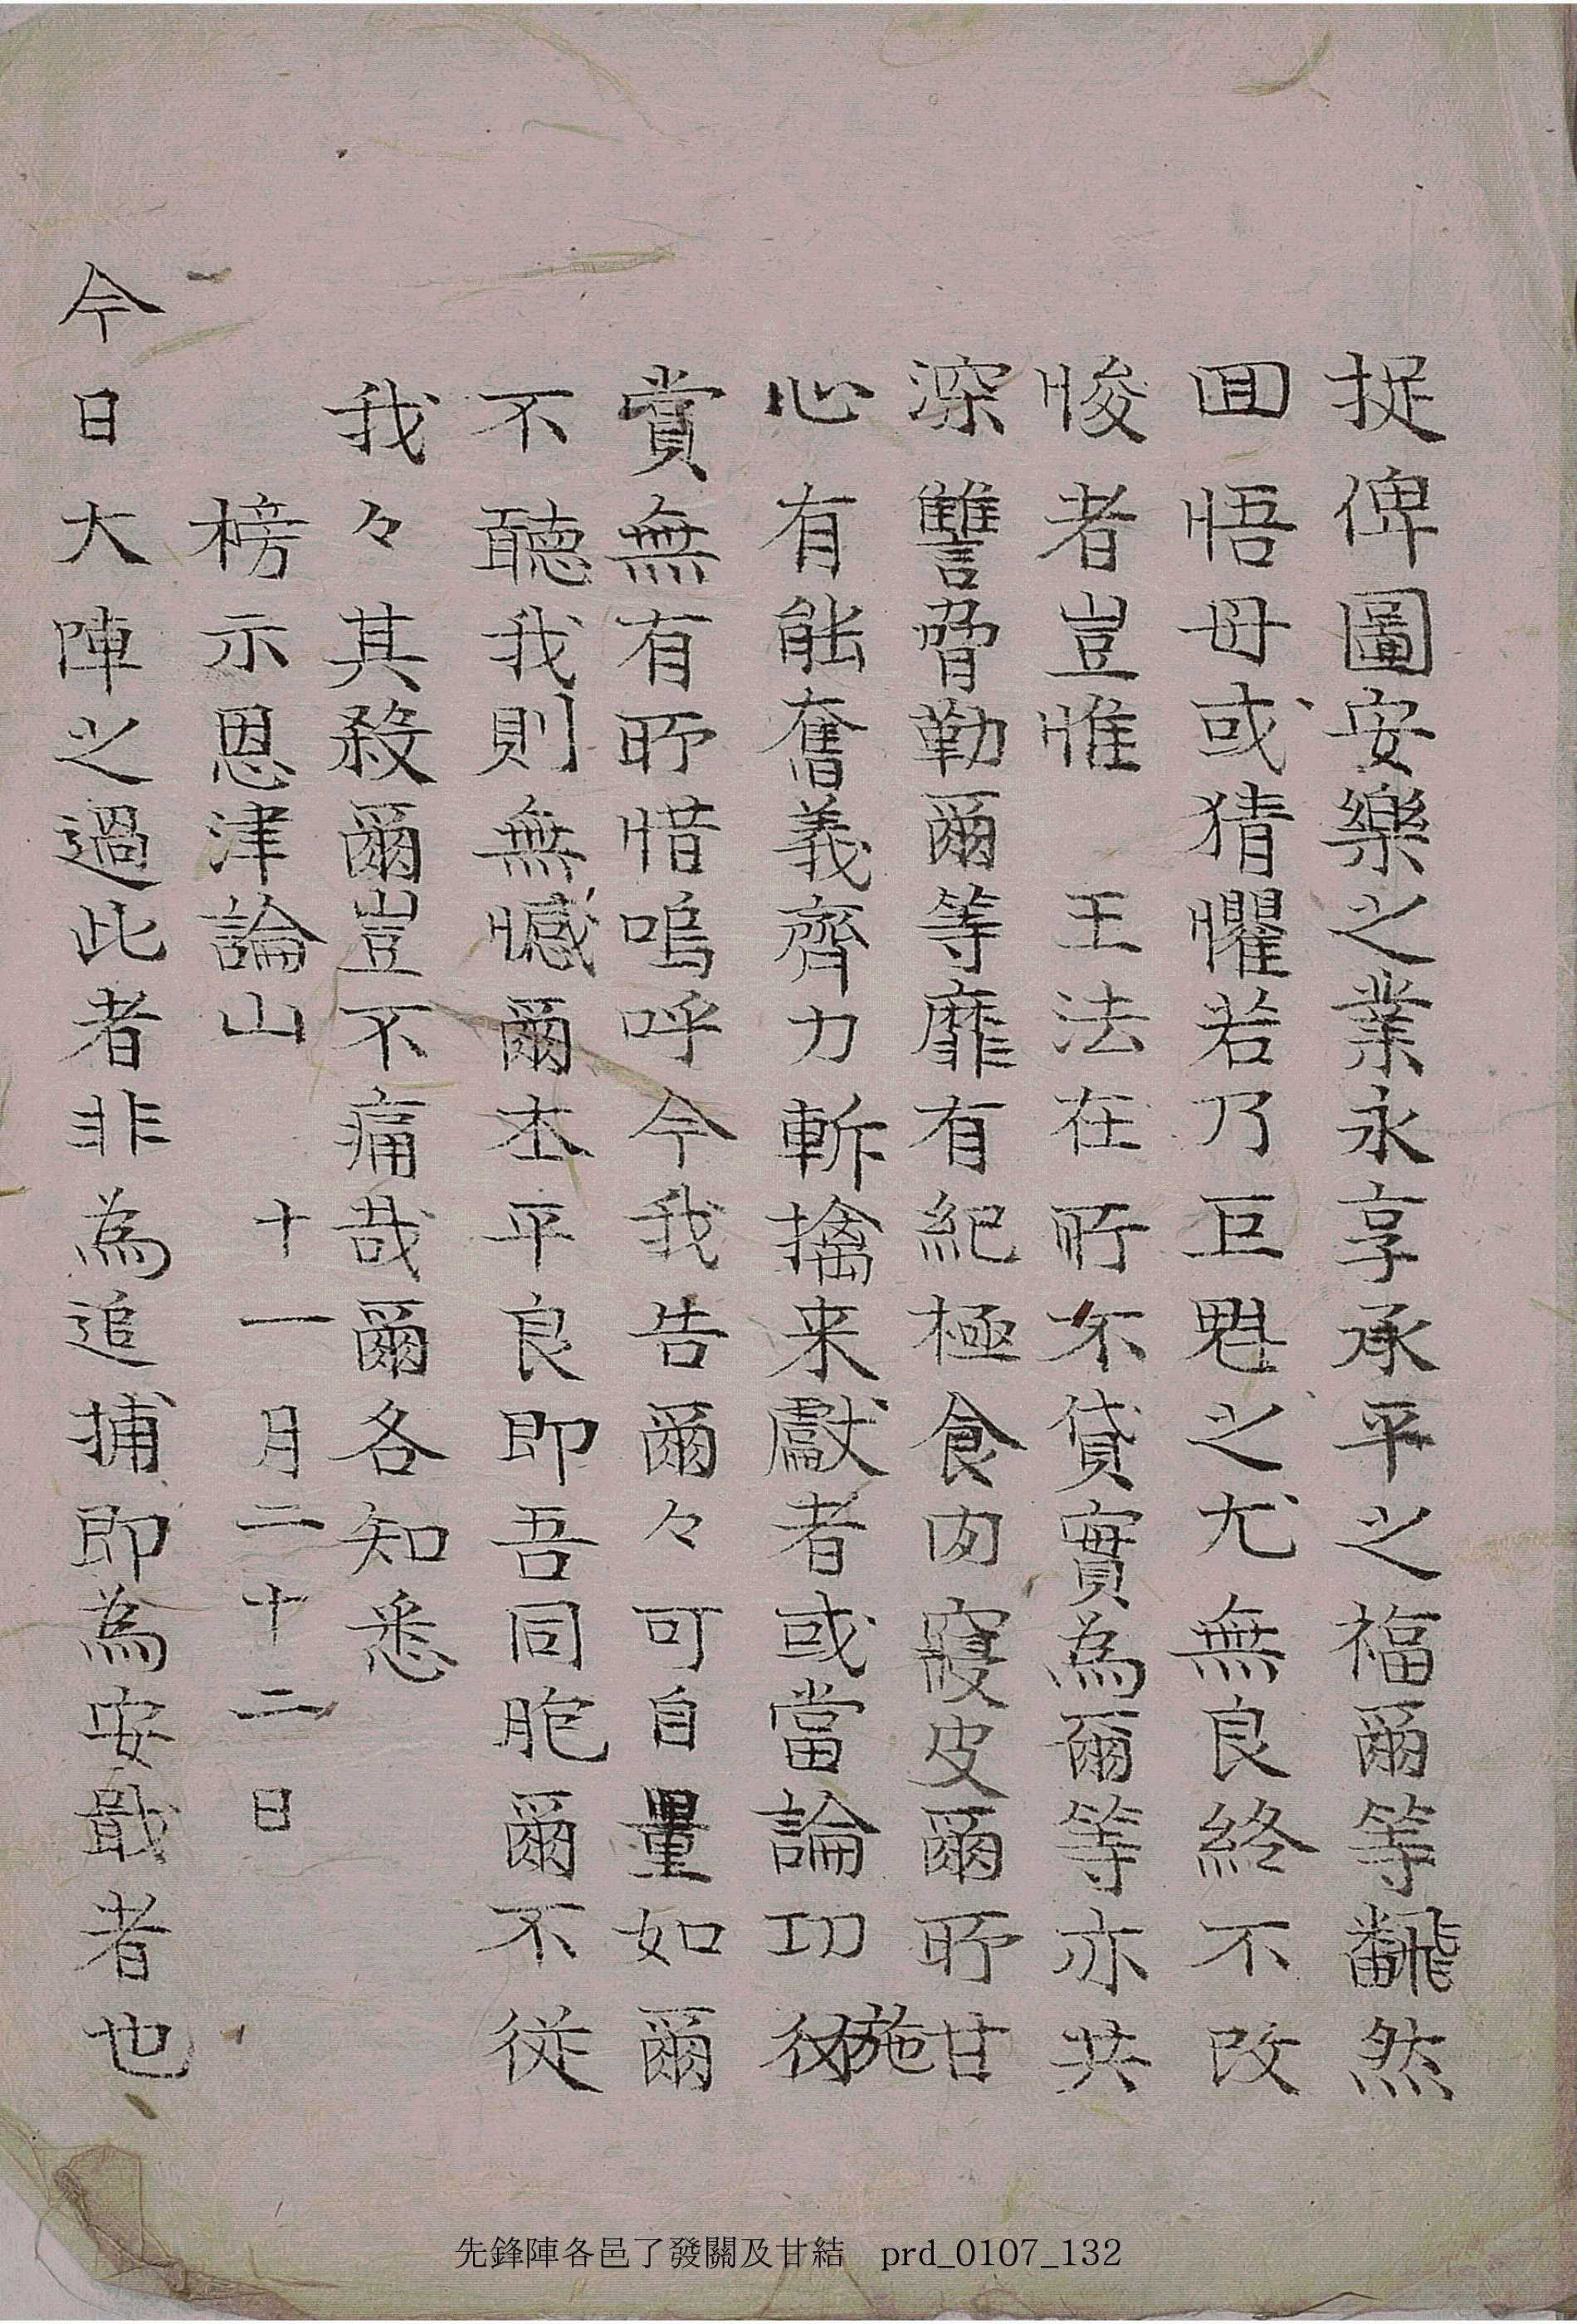 捉俾圖安樂之業永享承平之福爾等飜然
回悟毋或猜懼若乃巨魁之尤無良終不改
悛者豈惟 王法在所不貸實為爾等亦共
深讐脅勒爾等靡有紀極食肉寢皮爾所甘
心有能奮義齊力斬擒来獻者或當論功施
賞無有所惜嗚呼今我告爾々可自量如爾
不聽我則無憾爾本平良即吾同胞爾不從
我々其殺爾豈不痛哉爾各知悉
榜示恩津論山 十一月二十二日
今日大陣之過此者非為追捕即為安戢者也
先鋒陣各邑了發關及甘結 prd_0107_132